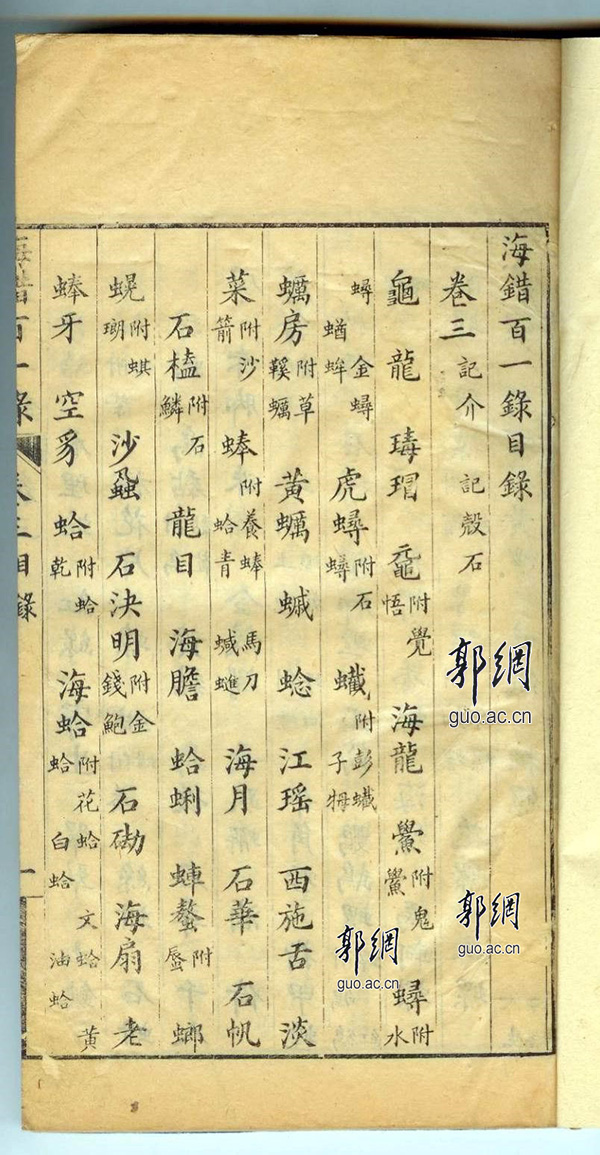 海錯百一錄目錄
卷三 記介 記殼石
龜 龍 瑇瑁 黿 附覺悟 海龍 鱟 附鬼鱟 蟳 附水
蟳 金蟳 蝤蛑 虎蟳 附石蟳 蠘 附彭蠘
蠣房 附草鞵蠣 黃蠣 江瑤 西施舌 淡
菜 附沙箭 蜯 附養蜯 馬刀 蛤青 海月 石華 石帆
石榼 附石鱗 龍目 海膽 蛤蜊 附蜃
附蜞 沙蝨 石決明 附金錢鮑 石磡 海扇 老
蜯牙 空豸 蛤 附蛤乾 海蛤 附花蛤 文蛤 黃蛤 白蛤 油蛤
海錯百一錄 卷三目錄 一
郭網
guo.ac.cn
郭網
guo.ac.cn
郭網
guo.ac.cn